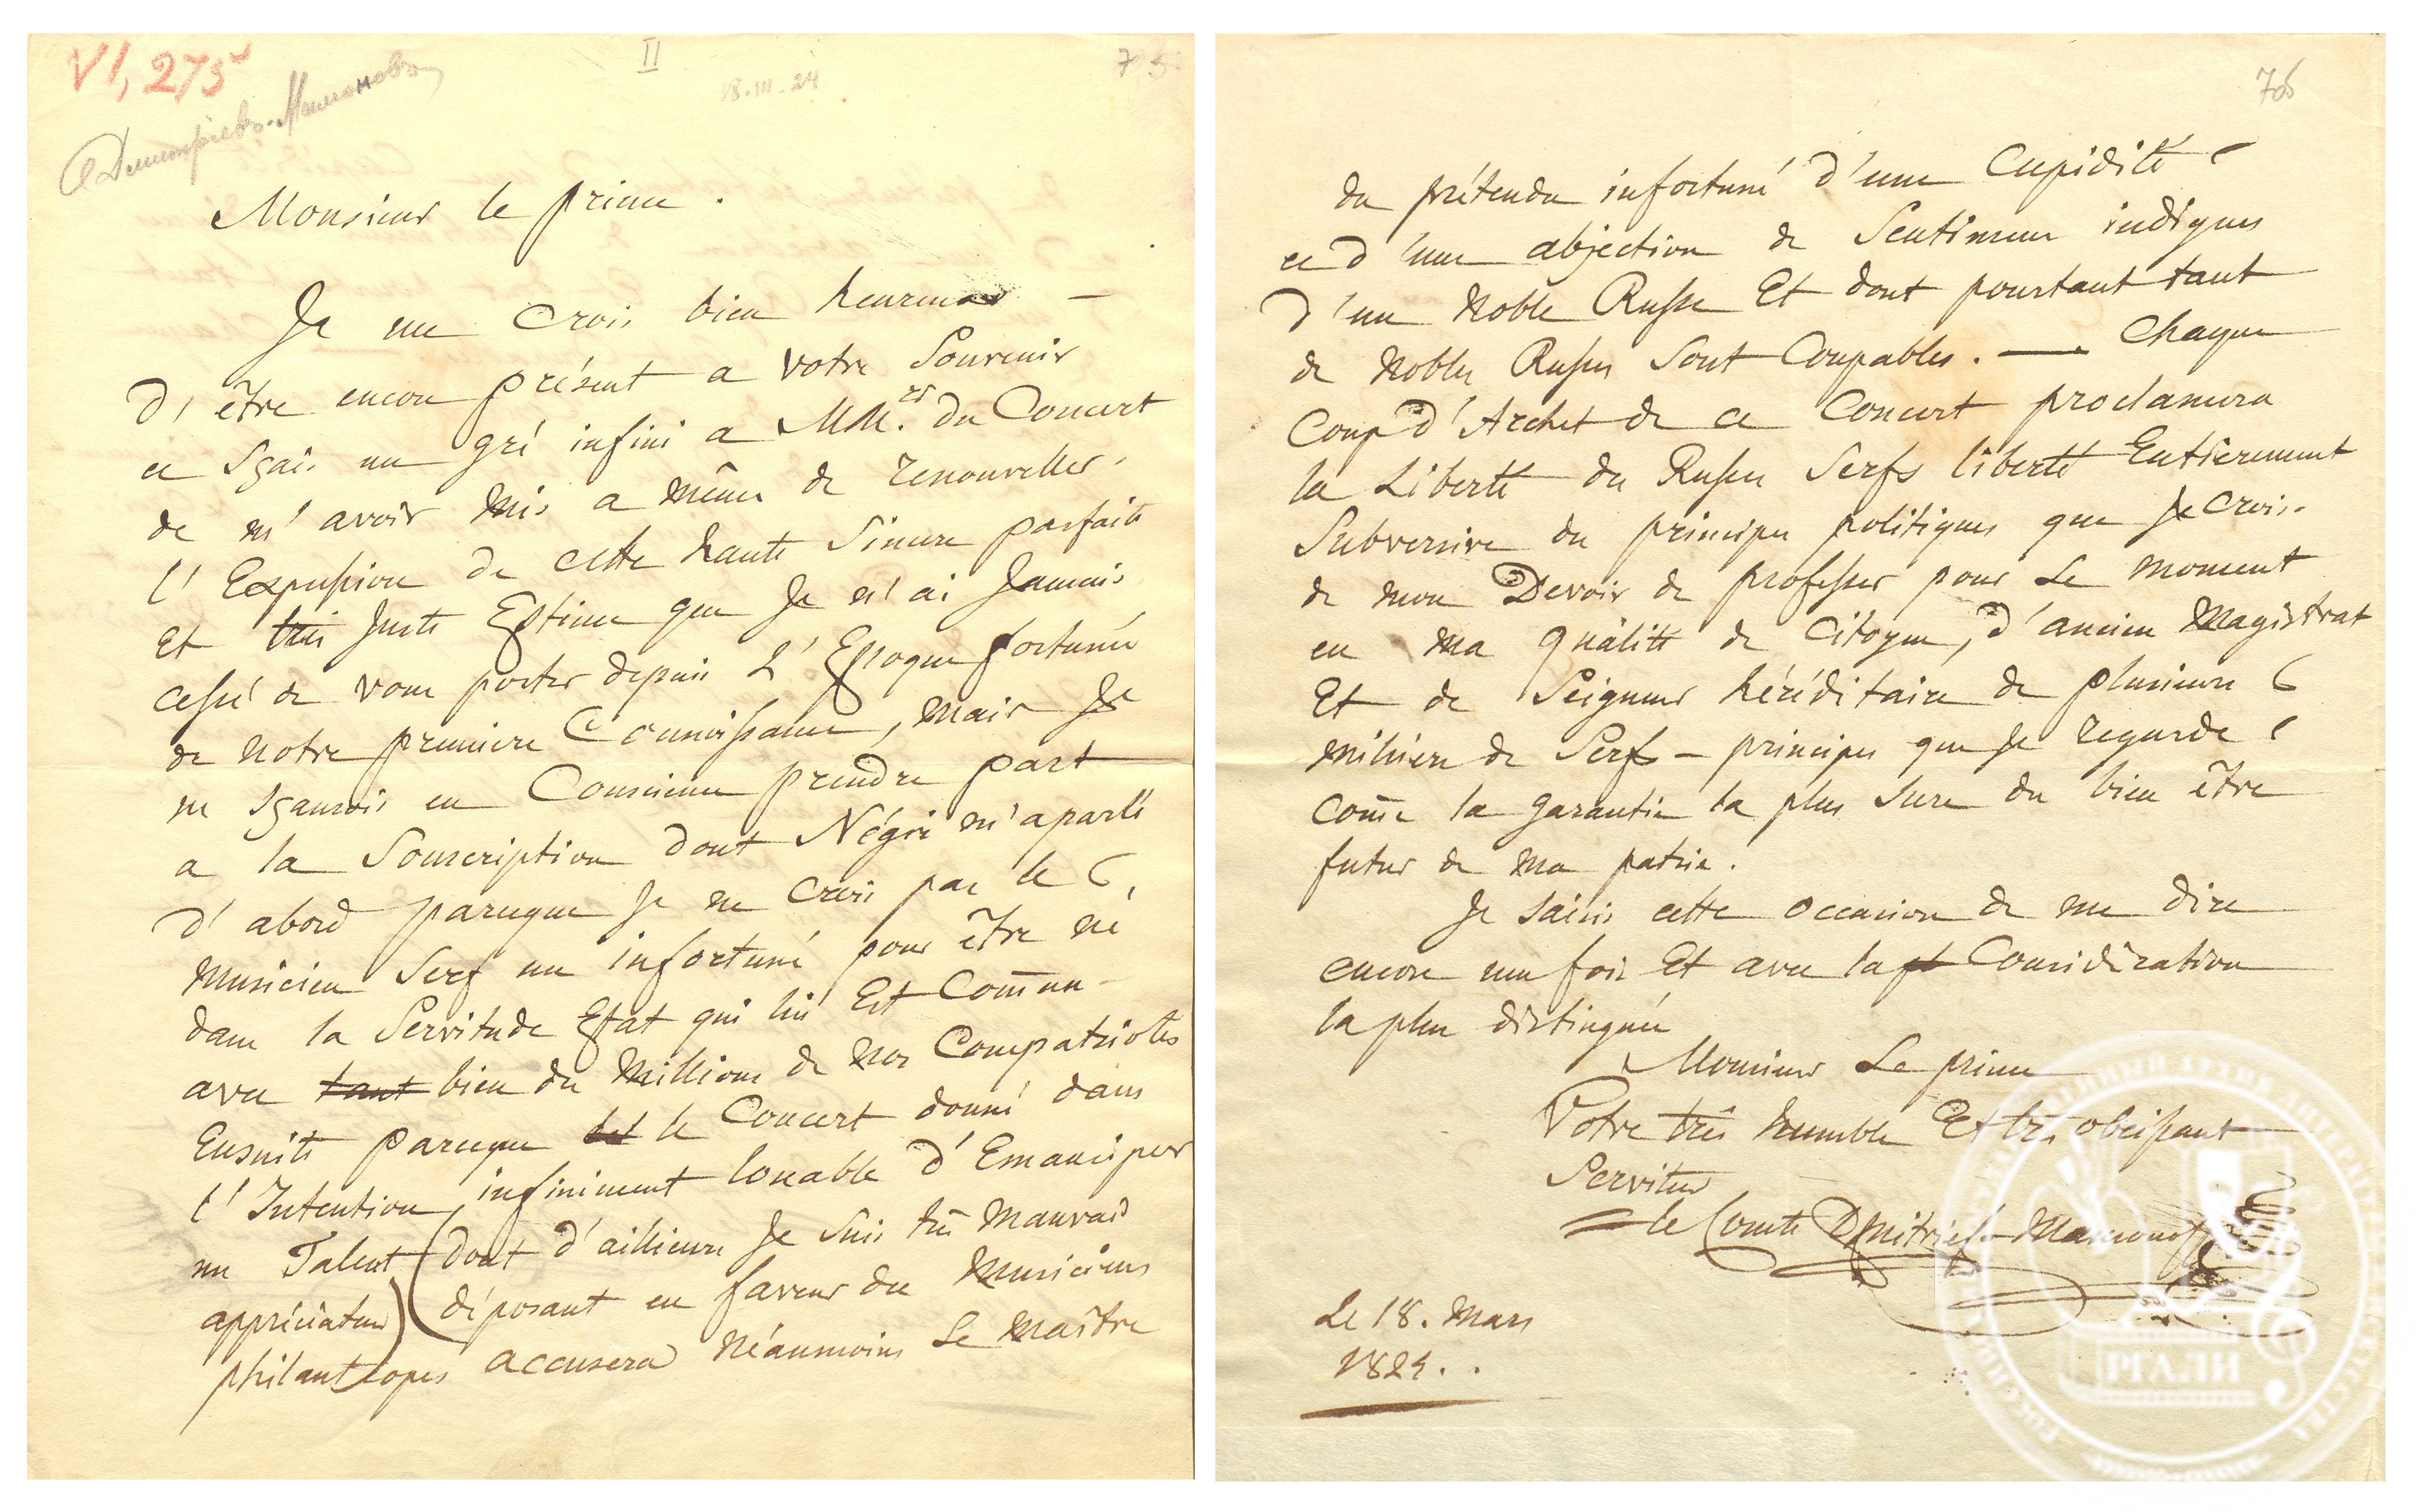 VI, 275
II
18.III.24
75
Дмитриев-Мамонов
Monsieur le prince.
Je me crois bien heureux —
d'être encore présent a votre Souvenir
et Sçais un gré infini a MM.rs du Concert
de m'avoir mis a même de renouveller
l'Expression de cette haute Sincere parfaite
et très juste Estime que je n'ai jamais
cessé de vous porter depuis l'Epoque fortunée
de notre premiere Connoissance, mais je
ne sçaurois en Conscience prendre part
a la Souscription dont Négri m'a parlé
d'abord parceque je ne crois pas le
Musicien Serf un infortuné pour être né
dans la Servitude Etat qui lui Est Comun
avec tant bien des Millions de Nos Compatriotes
Ensuite parceque le Concert donné dans
l'Intention, infiniment louable d'Emanciper
un Talent (dont d'aillieurs je suis très mauvais
appréciateur) déposant en faveur des Musiciens
philantropes accusera Néanmoins Le Maître
76
du prétendu infortuné d'une Cupidité
et d'une abjection de Sentimens indignes
d'un Noble Russe Et dont pourtant tant
de Nobles Russes Sont Coupables. — Chaque
Coup d'Archet de ce Concert proclamera
la Liberté des Russes Serfs liberté Entierement
Subversive des principes politiques que je crois
de mon Devoir de professer pour Le moment
en ma qualité de Citoyen, d'ancien Magistrat
Et de Seigneur héréditaire de plusieurs
milliers de Serfs — principes que je regarde
come la garantie la plus sure du bien être
futur de ma patrie.
Je saisis cette occasion de me dire
encore une fois Et avec la Considération
la plus distinguée
Monsieur Le prince
Votre très humble Et très obéissant
Serviteur
le Comte Dmitrieff-Mamonoff
Le 18. Mars
1824..
РГАЛИ